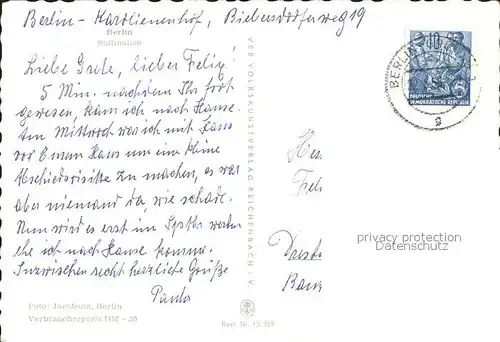 Berlin - Karolinenhof, Biebersdorferweg 19
Berlin
Stalinallee
Liebe Grete, lieber Felix!
5 Min. nachdem Ihr fort
gewesen, kam ich nach Hause.
Am Mittwoch war ich mit Hans
vor Eurem Haus um eine kleine
Abschiedsvisite zu machen, es war
aber niemand da, wie schade.
Nun wird es erst im Septbr. werden
ehe ich nach Hause komme.
Inzwischen recht herzliche Grüße
Foto: Jacobson, Berlin
Verbraucherpreis DM -,20
VEB VOLKSKUNSTVERLAG REICHENBACH i. V.
Best. Nr. 15/359
10
DEUTSCHE
DEMOKRATISCHE REPUBLIK
BERLIN
g
privacy protection
Datenschutz